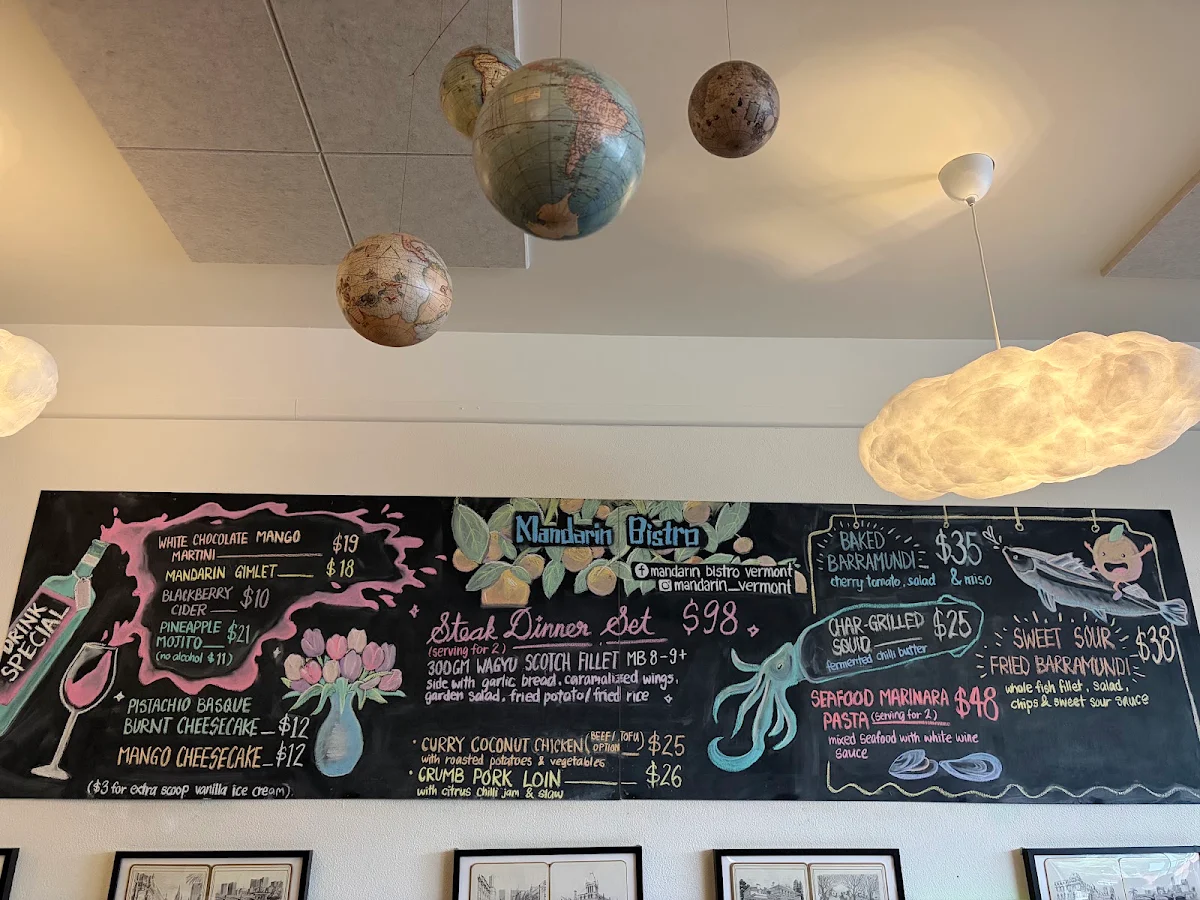 DRINK
SPECIAL
WHITE CHOCOLATE MANGO
MARTINI $19
MANDARIN GIMLET $18
BLACKBERRY
CIDER $10
PINEAPPLE
MOJITO $21
(no alcohol $11)
PISTACHIO BASQUE
BURNT CHEESECAKE $12
MANGO CHEESECAKE $12
($3 for extra scoop vanilla ice cream)
Mandarin Bistro
mandarin bistro vermont
mandarin_vermont
Steak Dinner Set $98
(serving for 2)
300GM WAGYU SCOTCH FILLET MB 8-9+
side with garlic bread, caramalized wings,
garden salad, fried potato/fried rice
CURRY COCONUT CHICKEN (BEEF/TOFU OPTION) $25
with roasted potatoes & vegetables
CRUMB PORK LOIN $26
with citrus chilli jam & slaw
BAKED
BARRAMUNDI $35
cherry tomato, salad & miso
CHAR-GRILLED
SQUID $25
fermented chilli butter
SEAFOOD MARINARA
PASTA (serving for 2) $48
mixed seafood with white wine
sauce
SWEET SOUR
FRIED BARRAMUNDI $38
whole fish fillet, salad,
chips & sweet sour sauce